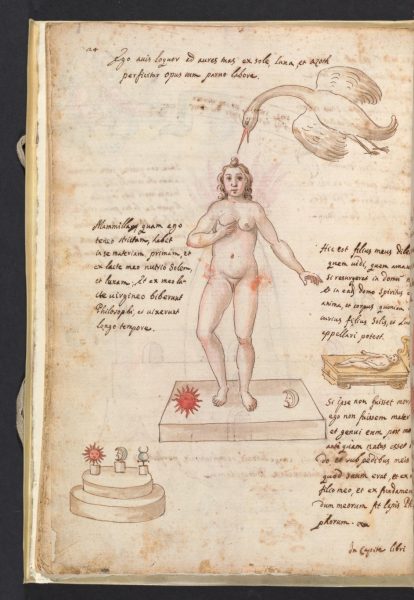 Ego auis loquor ad aures tuas ex sole, Luna, et azoth
perficitur opus cum paruo labore.
Mammillas quam ego
teneo strictam, habet
in se materiam primam, et
ex lacte meo nutrio Solem,
et Lunam, et ex meo la=
cte uirgineo biberunt
Philosophi, et uixerunt
longo tempore.
Hic est filius meus dile
quem uidi, quem amaui
si resurgeret in domo
& in ea domo spiritus
anima, et corpus quoniam
curius filius Solis, et Lu
appellari potest.
Si ipse non fuisset mor
ego non fuissem mater
et genui eum post mo
antequam natus esset
do et sub pedibus meis
quod suum erat, et ex
filio meo, et ex fundamen
dum meorum fit lapis Ph
phorum.
In Capite libri